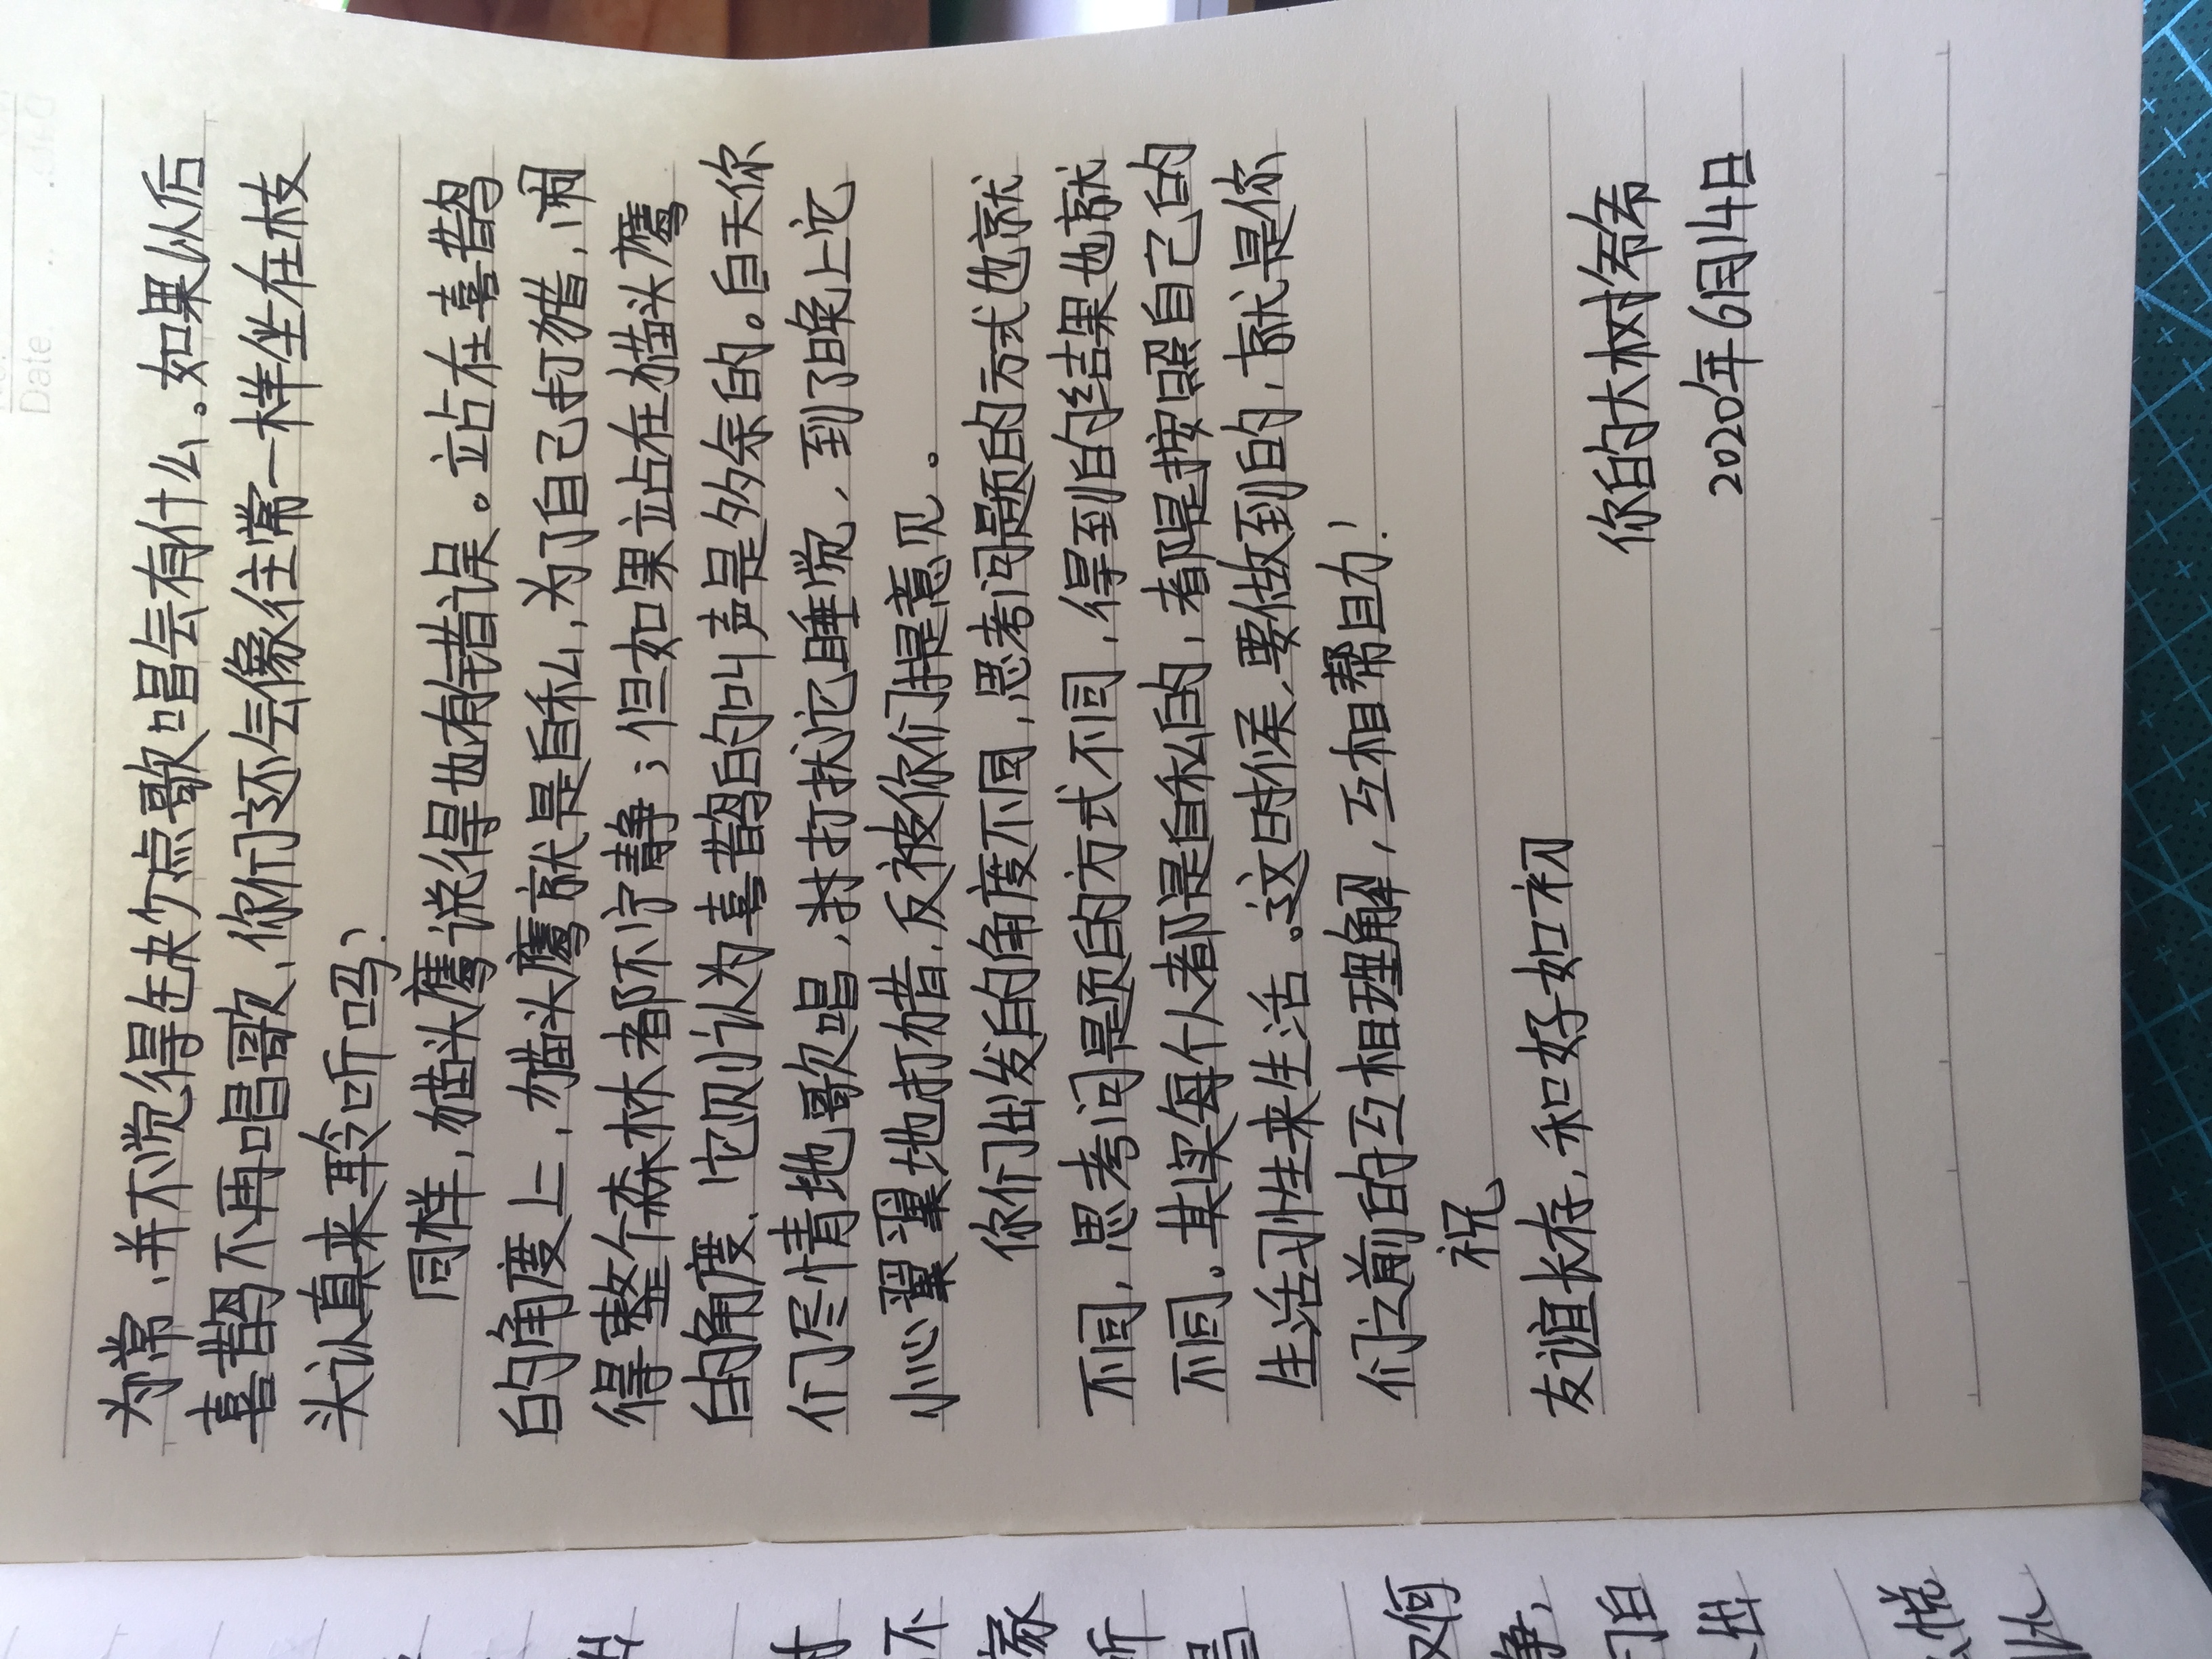 Date.
为常,并不觉得在缺少点歌唱会有什么。如果从后
喜鹊不再唱歌,你们还会像往常一样坐在枝
头认真来聆听吗?
同样,猫头鹰说得也有错误。立站在喜鹊
的角度上,猫头鹰就是自私,为了自己打猎,闹
得整个森林都不宁静;但如果立站在猫头鹰
的角度,它则认为喜鹊的叫声是多余的。白天你
们尽情地歌唱,打打扰它睡觉,到了晚上它
小心翼翼地打猎,反被你们提意见。
你们出发的角度不同,思考问题的方式也就
不同,思考问题的方式不同,得到的结果也就
不同。其实每个人都是自私的,都是按照自己的
生活习性来生活。这时候,要做到的,就是你
们之前的互相理解,互相帮助!
祝
友谊长存,和好如初
你的大树爷爷
2020年6月14日